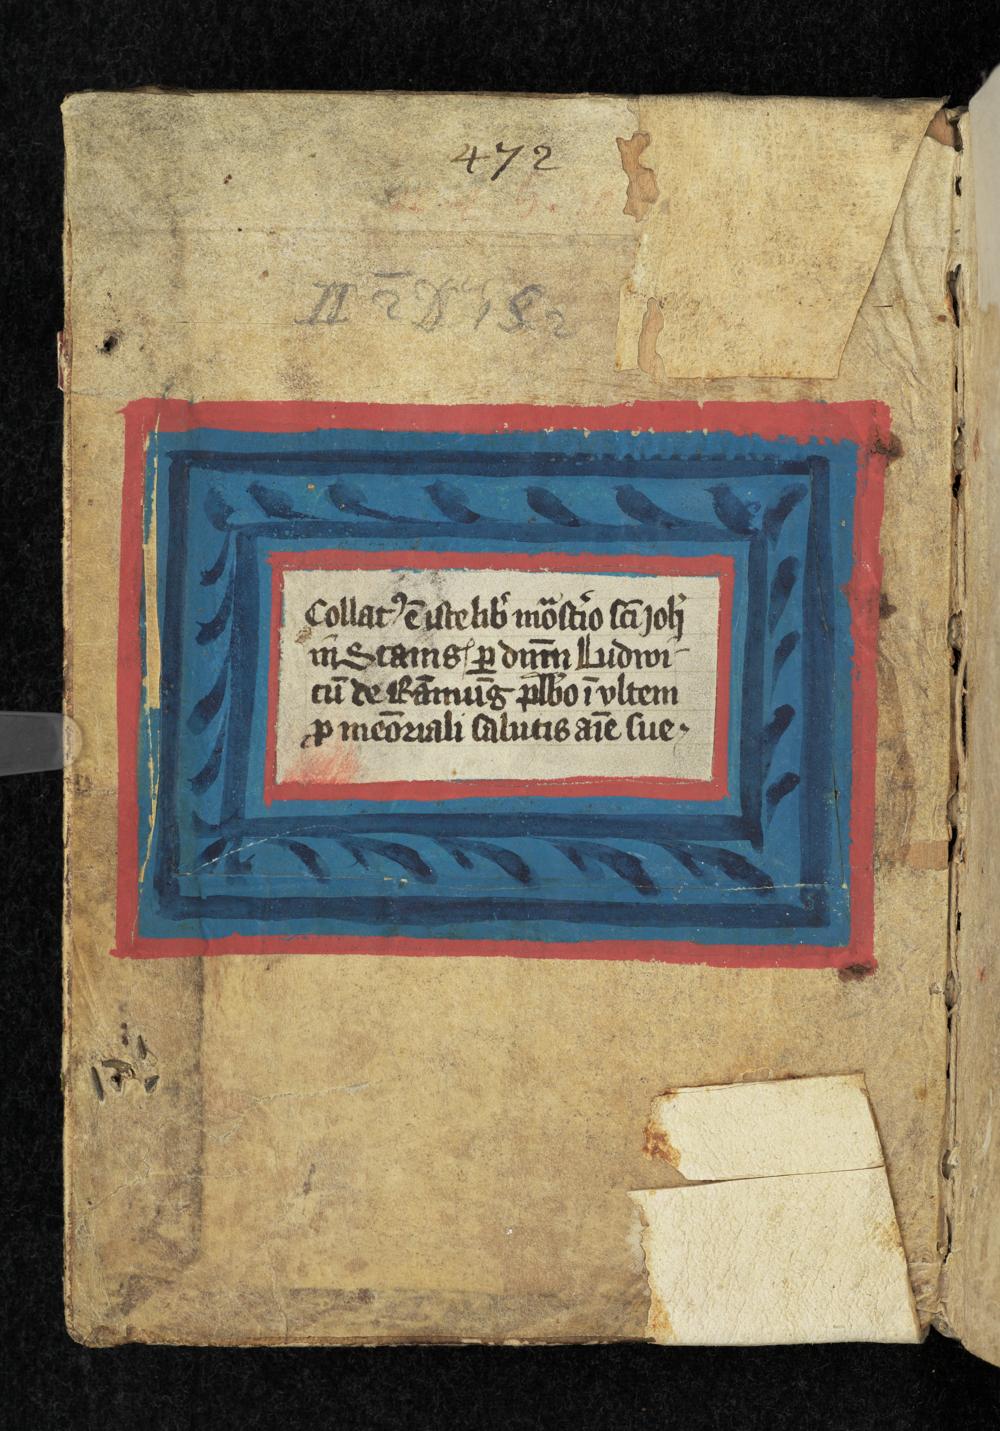 472
Collatꝰ ē iste lib̕ mōst̕io sc̄i Joh̄
in Stamsꝭ ꝑ dnm̄ Ludwi-
cū de Rāmūg plb̄o ī vltem
ꝓ meōriali salutis aīe sue·